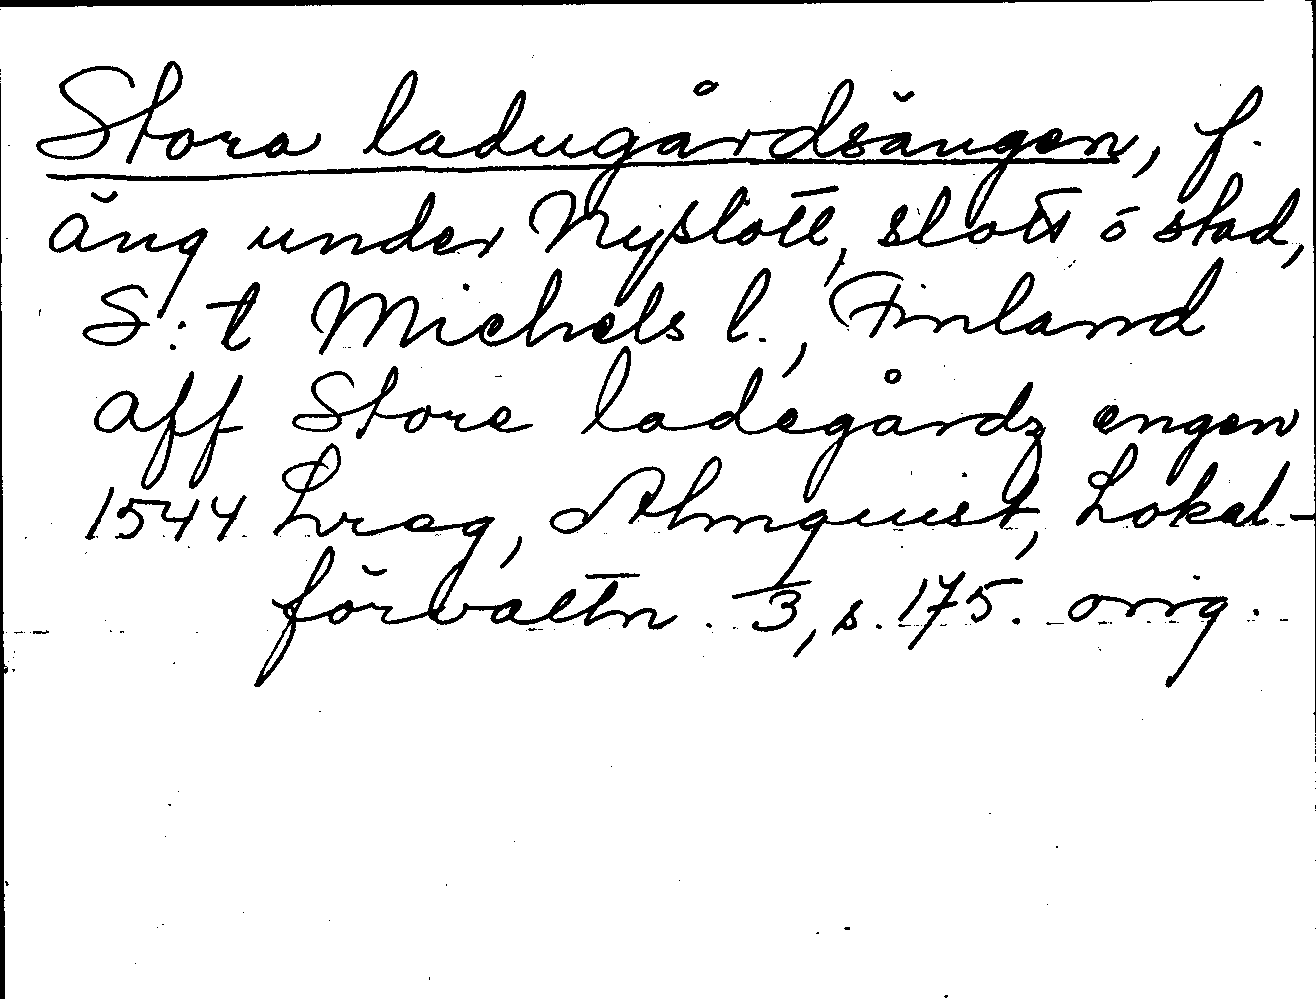 Stora ladugårdsängen, f.
äng under Nyslott, slott o stad,
S:t Michels l., Finland
aff Store ladegårdz engen
1544 Lreg, Almquist, Lokal-
förvaltn. 3, s. 175. orig.